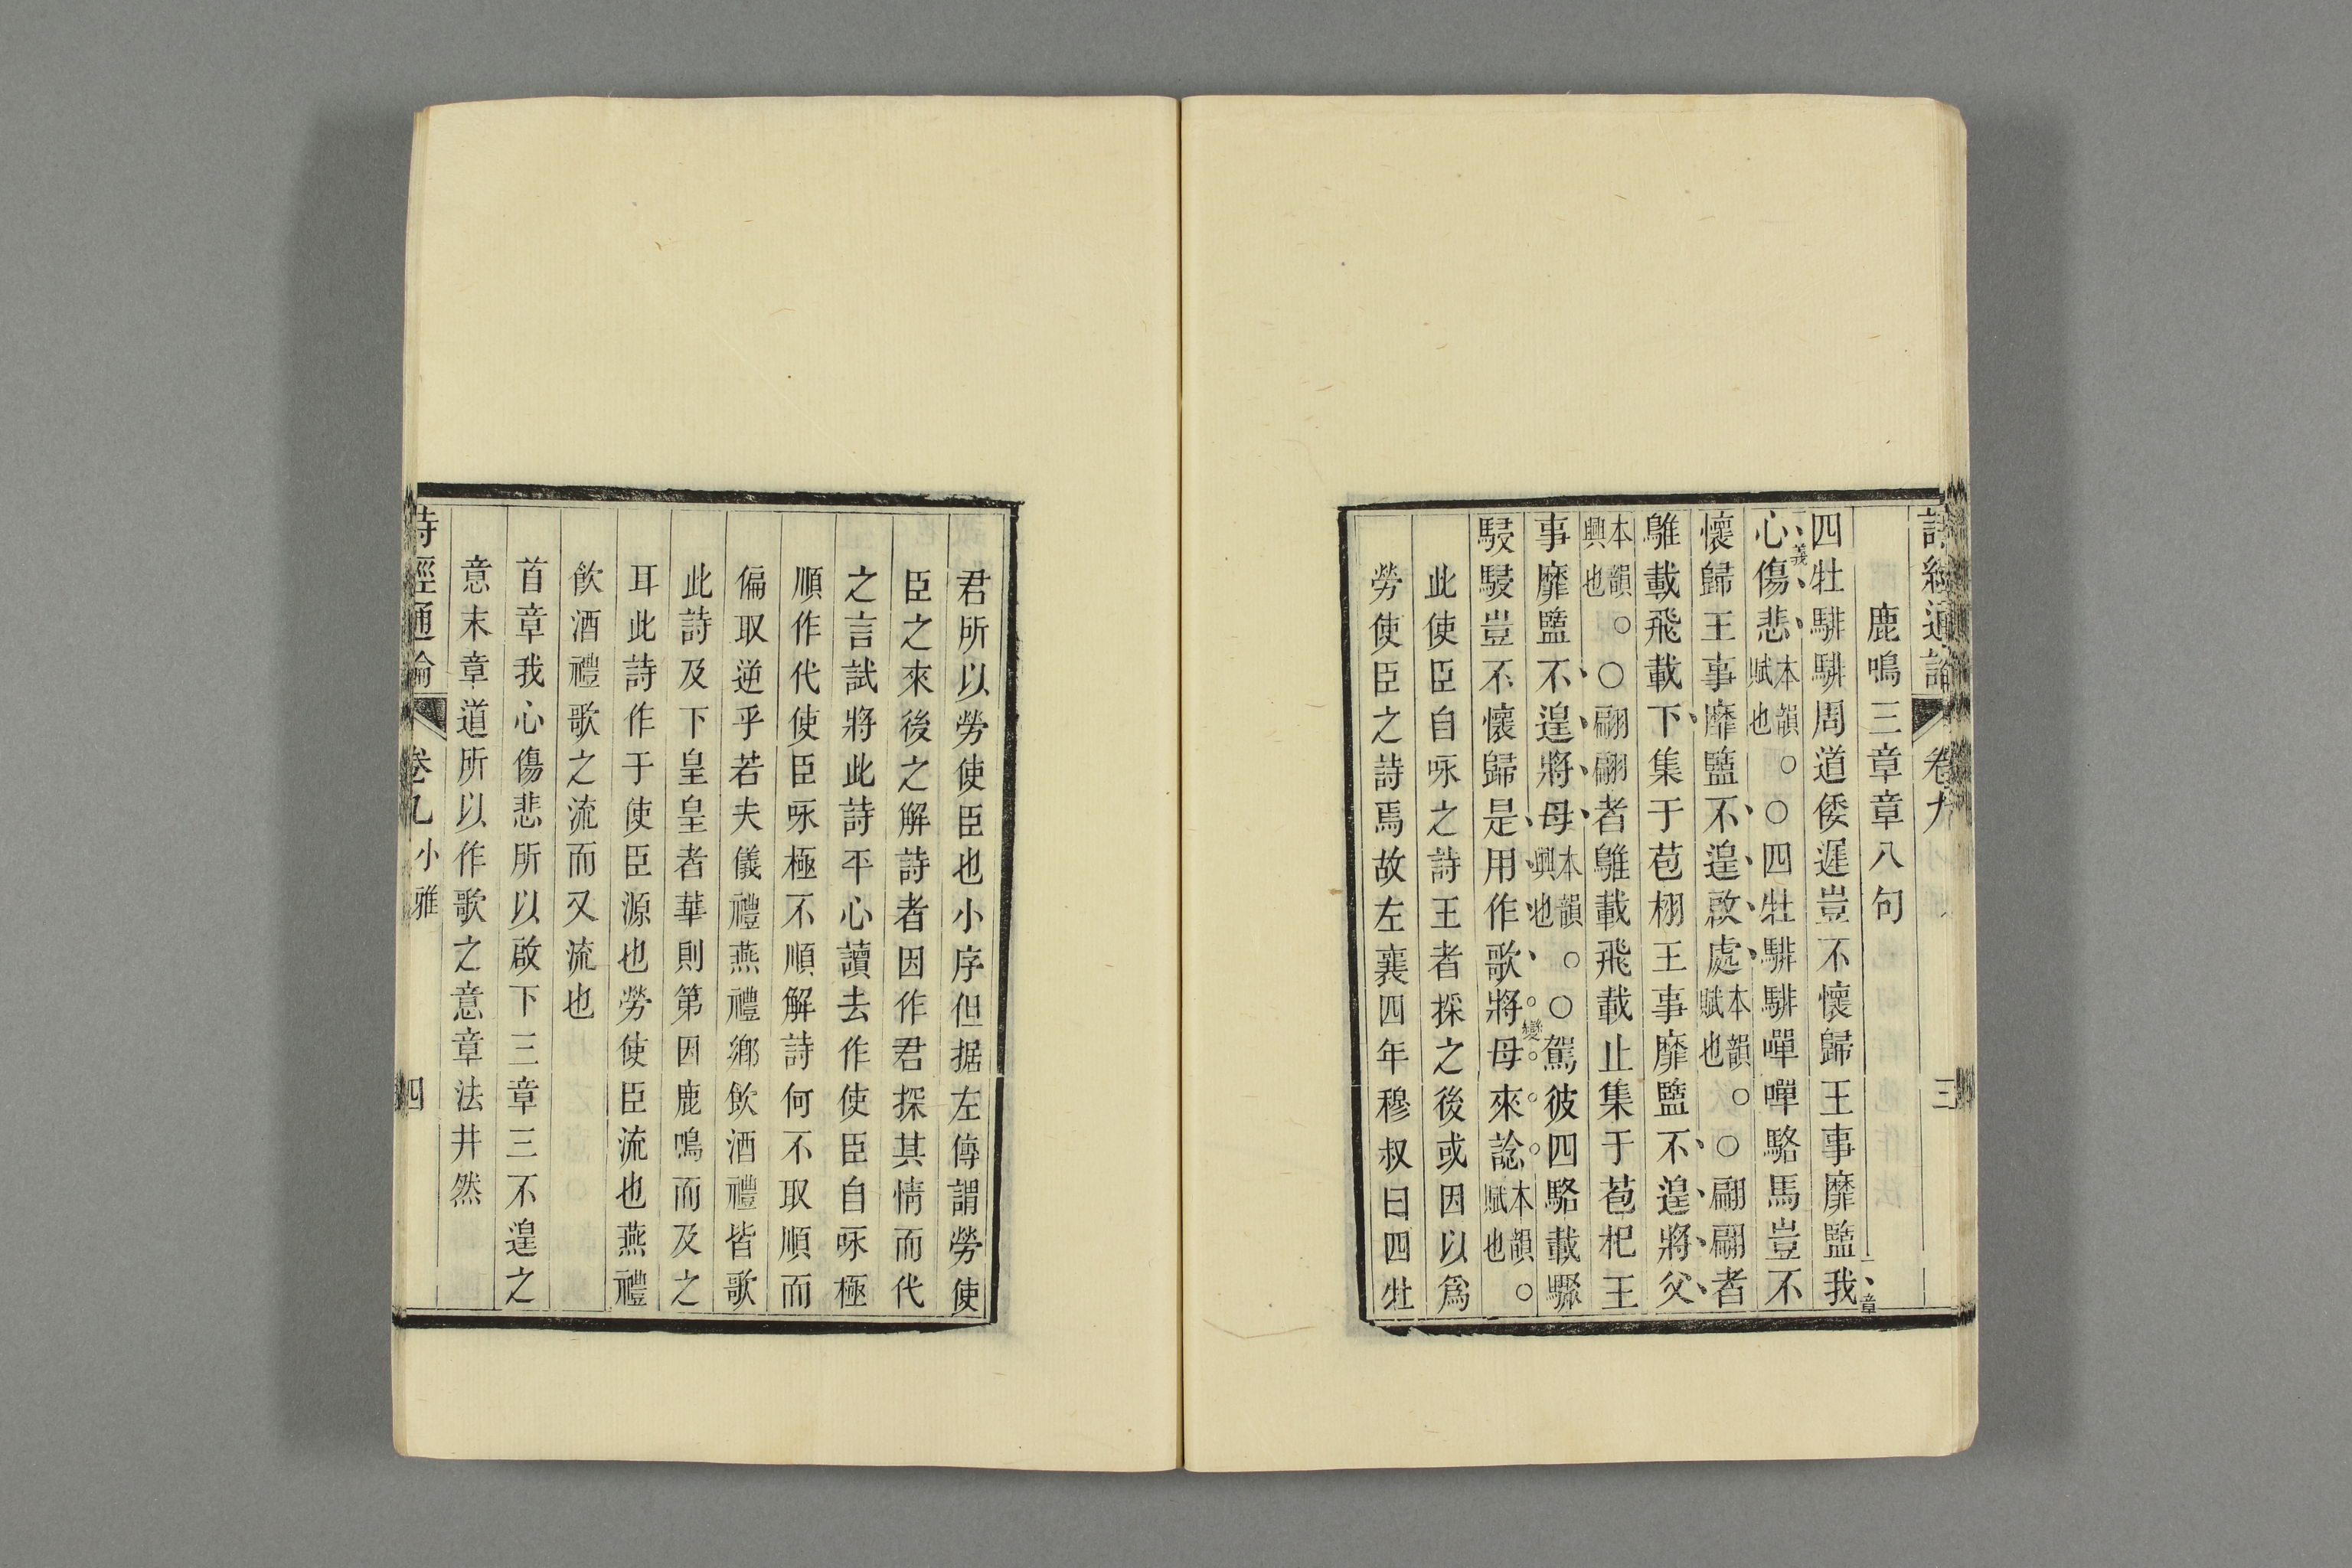 詩經通論 卷九 三
鹿鳴三章章八句
四牡騑騑周道倭遲豈不懷歸王事靡盬我
章義
心傷悲本韻賦也。○四牡騑騑嘽嘽駱馬豈不
懷歸王事靡盬不遑啟處本韻賦也。○翩翩者
鵻載飛載下集于苞栩王事靡盬不遑將父
本韻興也。○翩翩者鵻載飛載止集于苞杞王
事靡盬不遑將母本韻興也。○駕彼四駱載驟
駸駸豈不懷歸是用作歌將母來諗本韻賦也。
變
此使臣自咏之詩王者採之後或因以爲
勞使臣之詩焉故左襄四年穆叔曰四牡
君所以勞使臣也小序但据左傳謂勞使
臣之來後之解詩者因作君探其情而代
之言試將此詩平心讀去作使臣自咏極
順作代使臣咏極不順解詩何不取順而
偏取逆乎若夫儀禮燕禮鄉飲酒禮皆歌
此詩及下皇皇者華則第因鹿鳴而及之
耳此詩作于使臣源也勞使臣流也燕禮
飲酒禮歌之流而又流也
首章我心傷悲所以啟下三章三不遑之
意末章道所以作歌之意章法井然
詩經通論 卷九 小雅 四